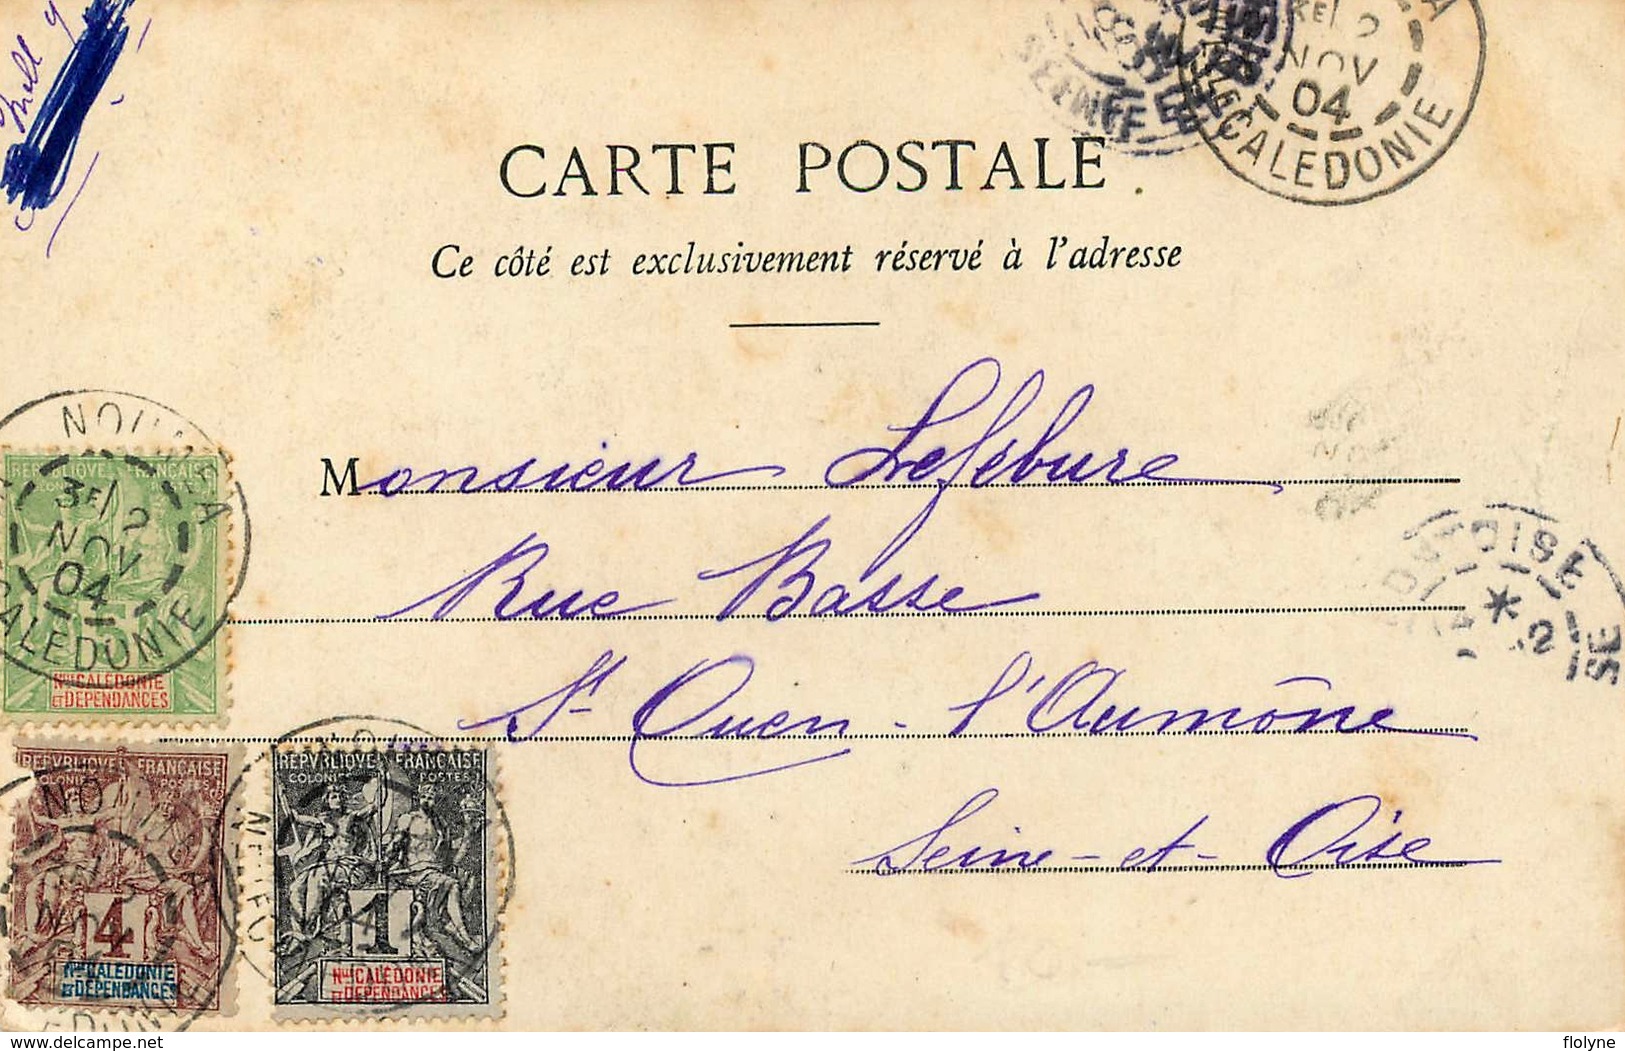 CARTE POSTALE
Ce côté est exclusivement réservé à l'adresse
Monsieur Lefébure
Rue Basse
St Ouen - l'Aumône
Seine-et-Oise
NOUMEA
3E/ 2
NOV
04
CALEDONIE
REPUBLIQUE FRANÇAISE
5
NLLE CALÉDONIE
ET DÉPENDANCES
2
NOV
04
CALEDONIE
SEINE
OISE
REPUBLIQUE FRANÇAISE
COLONIES POSTES
4
NLLE CALÉDONIE
ET DÉPENDANCES
REPVBLIQVE FRANÇAISE
COLONIES POSTES
1
NLLE CALÉDONIE
ET DÉPENDANCES
delcampe.net
flolyne